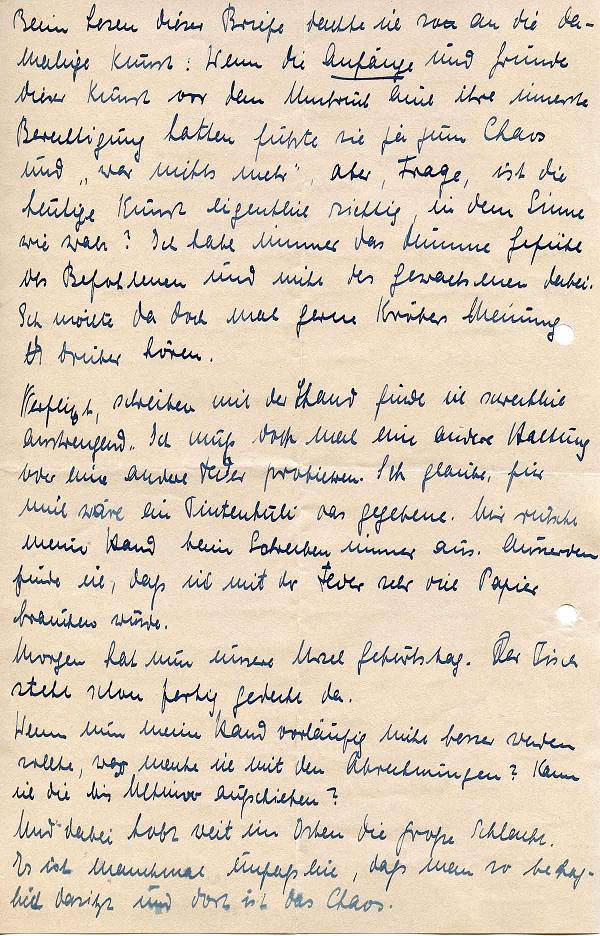 Beim Lesen dieser Briefe dachte ich so an die da-
malige Kunst: Wenn die Anfänge und Gründe
dieser Kunst vor dem Umbruch auch ihre innerste
Berechtigung hatten führte sie ja zum Chaos
und „war nichts mehr", aber, Frage, ist die
heutige Kunst eigentlich richtig, in dem Sinne
wie wahr? Ich habe immer das dumme Gefühl
des Befohlenen und nicht des gewachsenen dabei.
Ich möchte da doch mal gerne Kröhers Meinung
drüber hören.
Verflixt, schreiben mit der Hand finde ich schrecklich
anstrengend. Ich muß doch mal eine andere Haltung
oder eine andere Feder probieren. Ich glaube, für
mich wäre ein Tintenkuli das gegebene. Mir rutscht
meine Hand beim Schreiben immer aus. Ausserdem
finde ich, daß ich mit der Feder sehr viel Papier
brauchen würde.
Morgen hat nun unsere Ursel Geburtstag. Der Tisch
steht schon fertig gedeckt da.
Wenn nun meine Hand vorläufig nicht besser werden
sollte, was mache ich mit den Abrechnungen? Kann
ich die bis Ultimo aufschieben?
Und dabei tobt weit im Osten die große Schlacht.
Es ist manchmal unfaßlich, daß man so behag-
lich dasitzt und dort ist das Chaos.